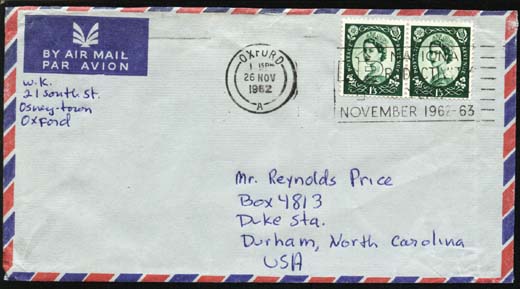 BY AIR MAIL
PAR AVION
W.K.
21 South St.
Osney-town
Oxford
OXFORD
26 NOV
1962
A
1/3 1/3
NOVEMBER 1962-63
Mr. Reynolds Price
Box 4813
Duke Sta.
Durham, North Carolina
USA